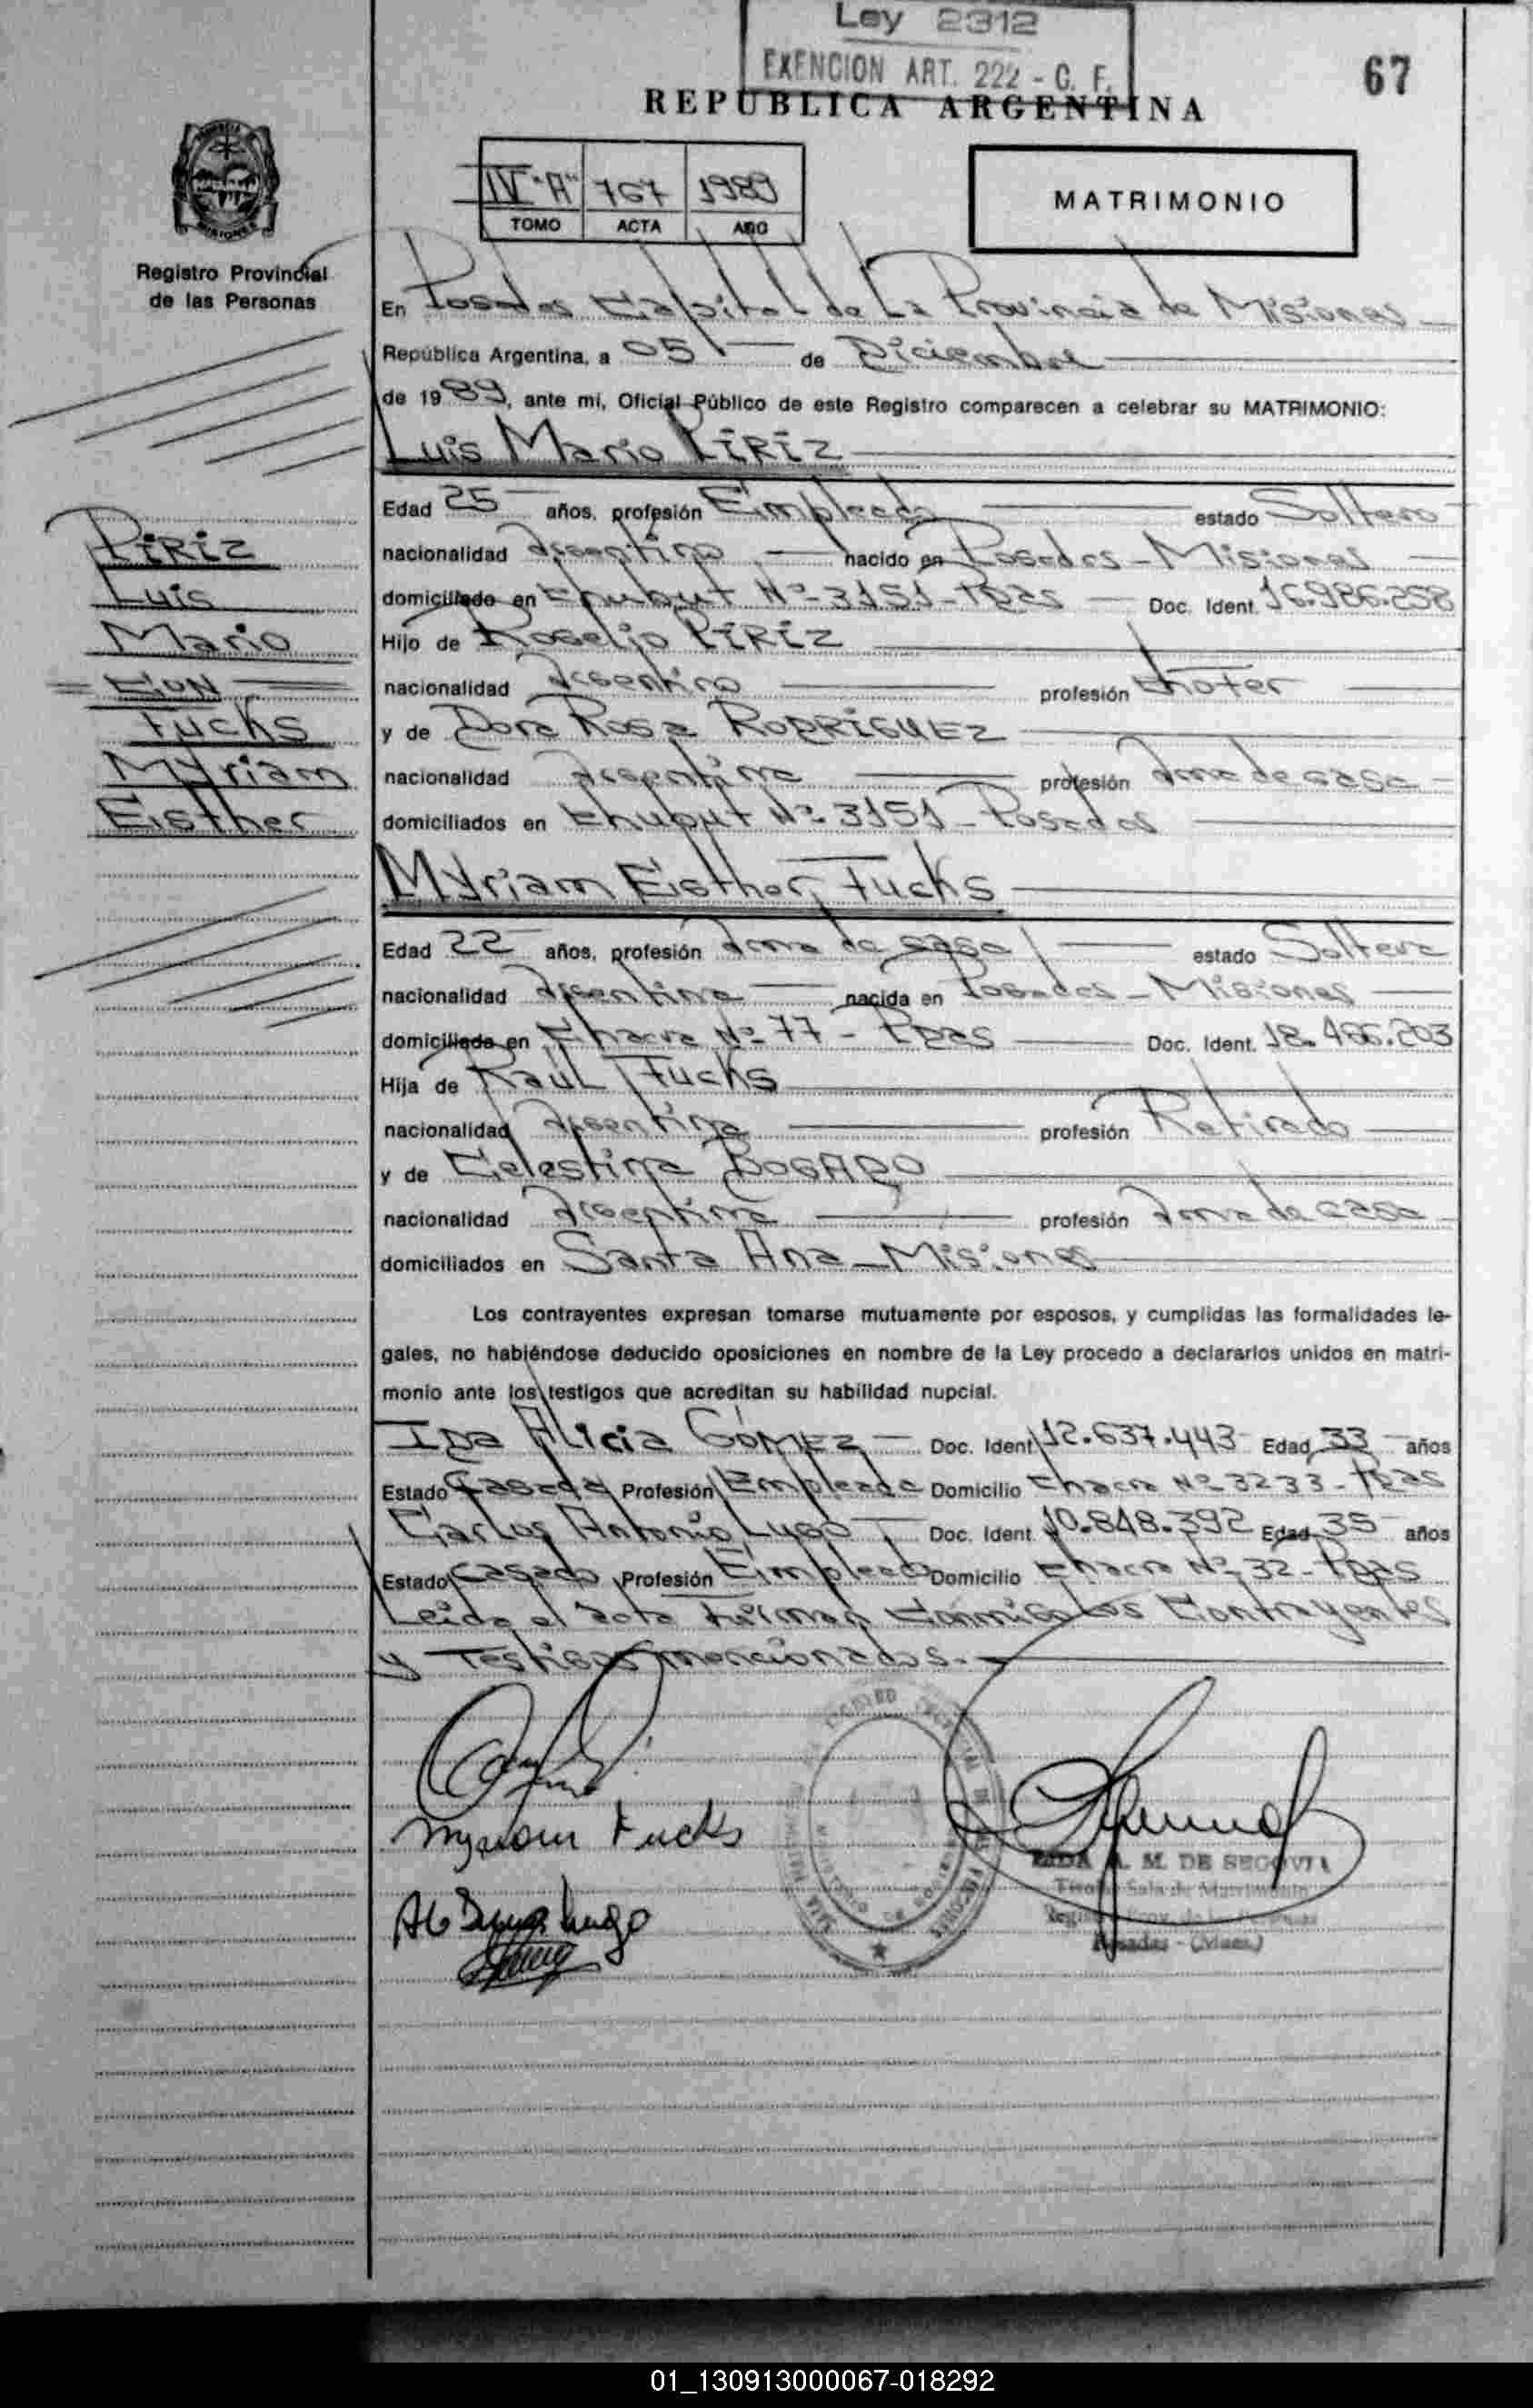 Ley 2312
EXENCION ART. 222 - C. F.
67
REPUBLICA ARGENTINA
IV "A" 767 1989
TOMO ACTA AÑO
MATRIMONIO
Registro Provincial
de las Personas
En Posadas Capital de La Provincia de Misiones
República Argentina, a 05 de Diciembre
de 1989, ante mí, Oficial Público de este Registro comparecen a celebrar su MATRIMONIO:
Luis Mario PIRIZ
Edad 25 años, profesión Empleado estado Soltero
nacionalidad Argentino nacido en Posadas - Misiones
domiciliado en Chubut Nº 3151 - Pdas Doc. Ident. 16.986.258
Hijo de Rogelio PIRIZ
nacionalidad Argentino profesión Chofer
y de Dora Rosa RODRIGUEZ
nacionalidad Argentina profesión Ama de casa
domiciliados en Chubut Nº 3151 - Posadas
PIRIZ
Luis
Mario
= CON =
Fucks
Myriam
Esther
Myriam Esther Fucks
Edad 22 años, profesión Ama de casa estado Soltera
nacionalidad Argentina nacida en Posadas - Misiones
domiciliada en Chacra Nº 77 - Pdas Doc. Ident. 18.466.203
Hija de Raúl Fucks
nacionalidad Argentina profesión Retirado
y de Celestina BOGADO
nacionalidad Argentina profesión Ama de casa
domiciliados en Santa Ana - Misiones
Los contrayentes expresan tomarse mutuamente por esposos, y cumplidas las formalidades le-
gales, no habiéndose deducido oposiciones en nombre de la Ley procedo a declararlos unidos en matri-
monio ante los testigos que acreditan su habilidad nupcial.
Ida Alicia GÓMEZ - Doc. Ident. 12.637.443 Edad 33 años
Estado Casada Profesión Empleada Domicilio Chacra Nº 3233 - Pdas
Carlos Antonio Lugo Doc. Ident. 10.848.392 Edad 35 años
Estado Casado Profesión Empleado Domicilio Chacra Nº 32 - Pdas
Leída el acta firman conmigo los Contrayentes
y Testigos mencionados.-
Myriam Fucks
Lugo
A. M. DE SEGOVIA
Sala de Matrimonio
Posadas - (Mnes.)
01_130913000067-018292